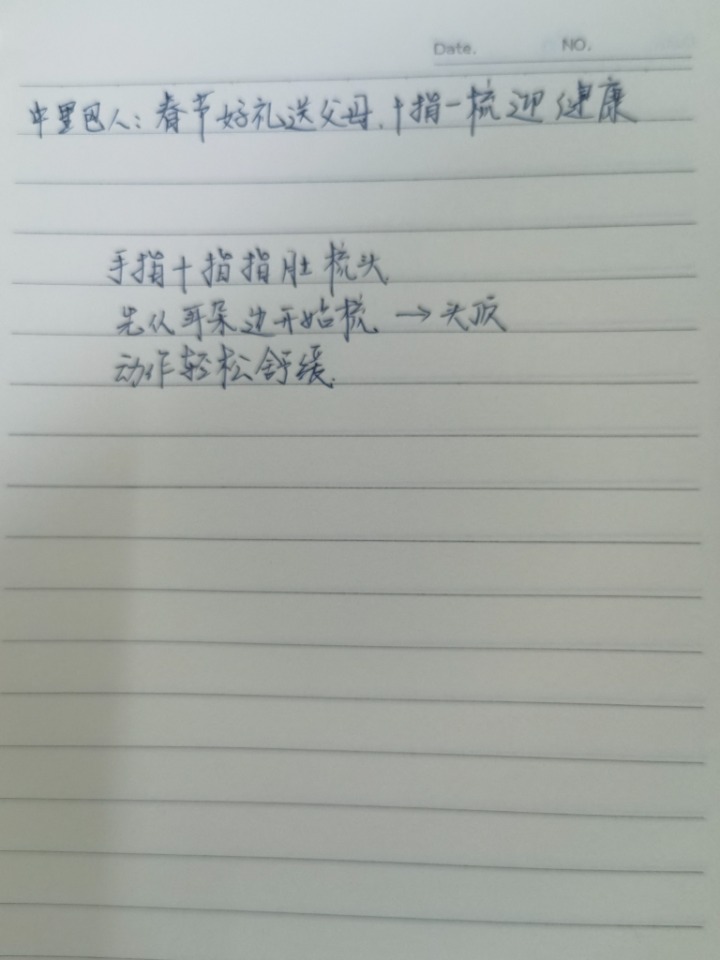 Date.
NO.
中里巴人：春节好礼送父母，十指一梳迎健康
手指十指指肚梳头
先从耳朵边开始梳 → 头顶
动作轻松舒缓.